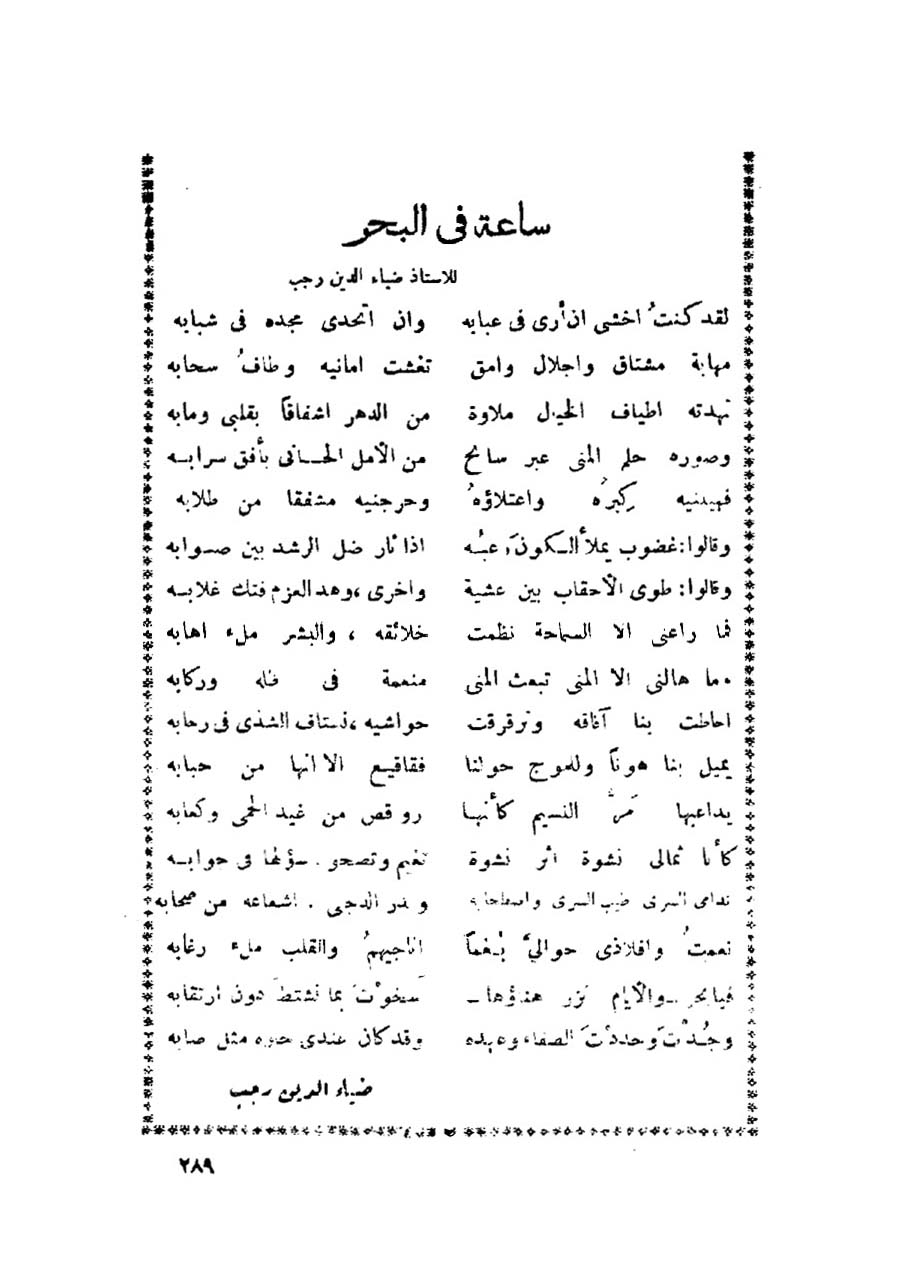 ساعة فى البحر
للاستاذ ضياء الدين رجب
لقد كنتُ اخشى ان أرى فى عبابه وان اتحدى مجده فى شبابه
مهابة مشتاق واجلال وامق تغشت امانيه وطافُ سحابه
تهدته اطياف الخيال ملاوة من الدهر اشفاقاً بقلبى ومابه
وصوره حلم المنى عبر سانح من الأمل الحانى بأفق سرابه
كِبرُه واعتلاؤهُ وحرجنيه مشفقا من طلابه
وقالوا: غضوب يملأ الكون اذا ثار ضل الرشد بين صوابه
وقالوا: طوى الأحقاب بين عشية واخرى ، وهد العزم فتك غلابه
فما راعنى الا السماحة نظمت خلائقه ، والبشر ملء اهابه
وما هالنى الا المنى تبعث المنى منعمة فى فلكه وركابه
احاطت بنا آفاقه وترقرقت حواشيه ، نستاف الشذى فى رحابه
يميل بنا هوناً وللموج حولنا فقاقيع الا انها من حبابه
يداعبها مَرُّ النسيم كأنها رواقص من غيد الحمى وكعابه
كأنا ثمالى نشوة اثر نشوة تغيم وتصحو فى جوابه
ندامى السرى طيب السرى واصطحابه وبدر الدجى . اشعاعه من صحابه
نعمتُ وافلاذى حوالىَّ نُعّماً اناجيهمُ والقلب ملء رغابه
فيابحر - والأيام نزر هناؤها - سخوْتَ بما نشتطَ دون ارتقابه
وجُدْتَ الصفاء وعهده وقد كان عندى حلوه مثل صابه
ضياء الدين رجب
٢٨٩